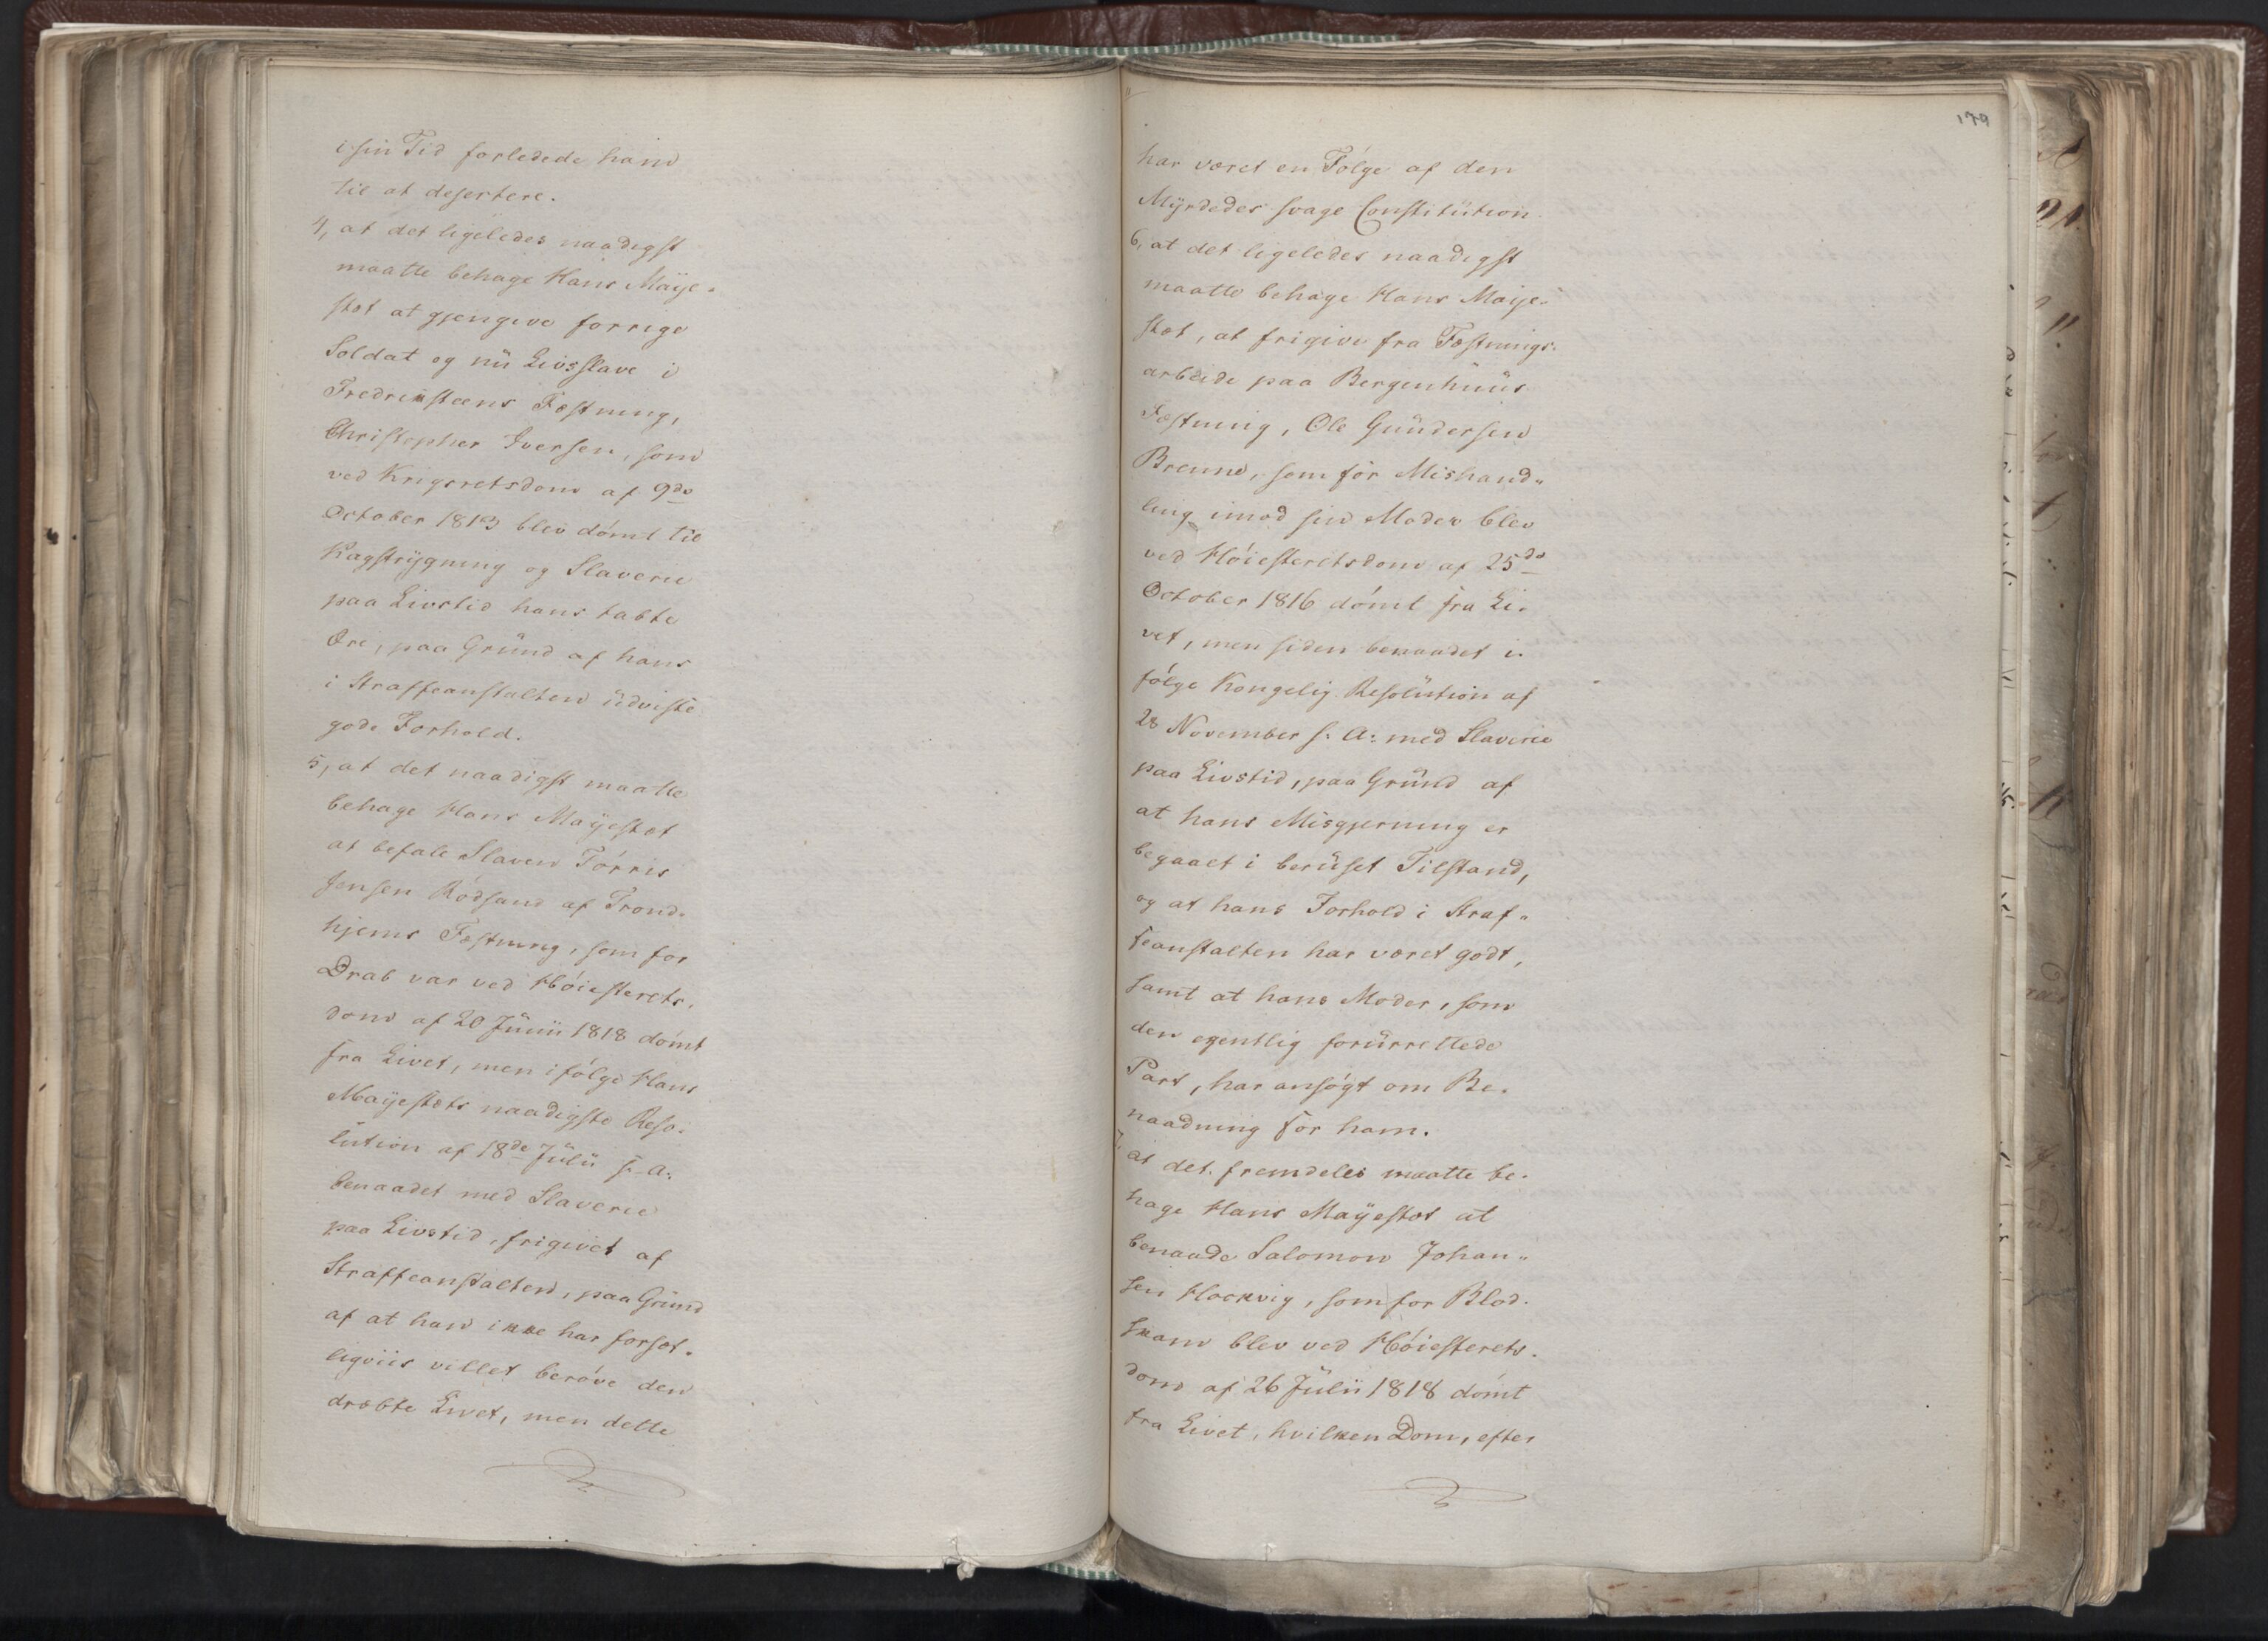 i sin Tid forledede ham
til at desertere.
4, at det ligeledes naadigst
maatte behage Hans Maje-
stæt at gjengive forrige
Soldat og nu Livsslave i
Fredrikstæens Fæstning,
Christopher Iversen, som
ved Krigsretsdom af 9de
October 1813 blev dömt til
Kagstrygning og Slaverie
paa Livstid hans tabte
Ære, paa Grund af hans
i Straffeanstalten udviste
gode Forhold.
5, at det naadigst maatte
behage Hans Majestæt
at befale Slaven Törris
Jensen Rödsand af Trond-
hjems Fæstning, som for
Drab var ved Höiesterets-
dom af 20 Junii 1818 dömt
fra Livet, men ifölge Hans
Majestæts naadigste Reso-
lution af 18de Julii s. A.
benaadet med Slaverie
paa Livstid, frigivet af
Straffeanstalten, paa Grund
af at han ikke har forsæt-
ligviis villet beröve den
dræbte Livet, men dette
179
har været en Fölge af den
Myrdedes svage Constitution.
6, at det ligeledes naadigst
maatte behage Hans Maje-
stæt, at frigive fra Fæstnings-
arbeide paa Bergenhuus
Fæstning, Ole Gundersen
Brenne, som for Mishand-
ling imod sin Moder blev
ved Höiesteretsdom af 25de
October 1816 dömt fra Li-
vet, men siden benaadet i-
fölge Kongelig Resolution af
28 November s: A: med Slaverie
paa Livstid, paa Grund af
at hans Misgjerning er
begaaet i beruset Tilstand,
og at hans Forhold i Straf-
feanstalten har været godt,
samt at hans Moder, som
den egentlig forurrettede
Part, har ansögt om Be-
naadning for ham.
7, at det fremdeles maatte be-
hage Hans Majestæt at
benaade Salomon Johan-
sen Hockvig, som for Blod-
skam blev ved Höiesterets-
dom af 26 Julii 1818 dömt
fra Livet, hvilken Dom, efter